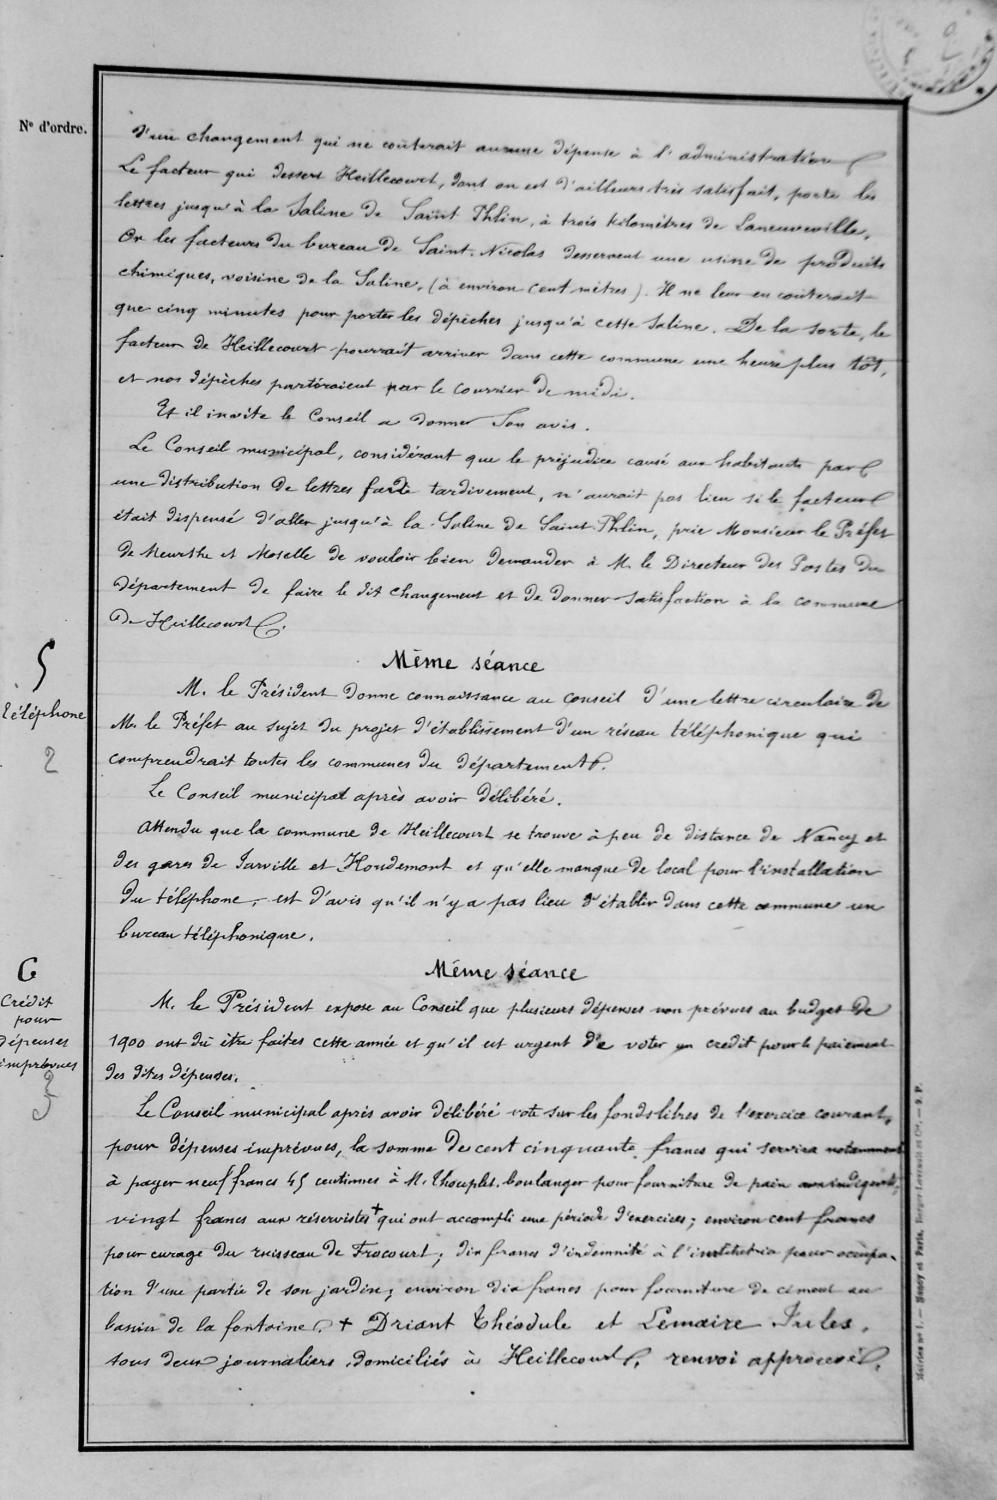 N° d'ordre.
d'un changement qui ne coûterait aucune dépense à l'administration
Le facteur qui dessert Heillecourt, dont on est d'ailleurs très satisfait, porte les
lettres jusqu'à la Saline de Saint Phlin, à trois kilomètres de Laneuveville.
Or les facteurs du bureau de Saint-Nicolas desservent une usine de produits
chimiques, voisine de la Saline, (à environ cent mètres). Il ne leur en coûterait
que cinq minutes pour porter les dépêches jusqu'à cette saline. De la sorte, le
facteur de Heillecourt pourrait arriver dans cette commune une heure plus tôt,
et nos dépêches partiraient par le courrier de midi.
Et il invite le Conseil a donner son avis.
Le Conseil municipal, considérant que le préjudice causé aux habitants par
une distribution de lettres faite tardivement, n'aurait pas lieu si le facteur
était dispensé d'aller jusqu'à la Saline de Saint-Phlin, prie Monsieur le Préfet
de Meurthe et Moselle de vouloir bien demander à M. le Directeur des Postes du
département de faire le dit changement et de donner satisfaction à la commune
de Heillecourt.
5
Téléphone
2
Même séance
M. le Président donne connaissance au Conseil d'une lettre circulaire de
M. le Préfet au sujet du projet d'établissement d'un réseau téléphonique qui
comprendrait toutes les communes du département.
Le Conseil municipal après avoir délibéré.
Attendu que la commune de Heillecourt se trouve à peu de distance de Nancy et
des gares de Jarville et Houdemont et qu'elle manque de local pour l'installation
du téléphone, est d'avis qu'il n'y a pas lieu d'établir dans cette commune un
bureau téléphonique.
6
Crédit
pour
dépenses
imprévues
3
Même séance
M. le Président expose au Conseil que plusieurs dépenses non prévues au budget de
1900 ont dû être faites cette année et qu'il est urgent de voter un crédit pour le paiement
des dites dépenses.
Le Conseil municipal après avoir délibéré vote sur les fonds libres de l'exercice courant,
pour dépenses imprévues, la somme de cent cinquante francs qui servira notamment
à payer neuf francs 45 centimes à M. Thouplet, boulanger pour fourniture de pain aux indigents;
vingt francs aux réservistes + qui ont accompli une période d'exercices; environ cent francs
pour curage du ruisseau de Frocourt; dix francs d'indemnité à l'institutrice pour occupa-
tion d'une partie de son jardin; environ dix francs pour fourniture de ciment au
bassin de la fontaine. + Driant Théodule et Lemaire Jules,
tous deux journaliers domiciliés à Heillecourt, renvoi approuvé.
Mairies n° 1. — Nancy et Paris, Berger-Levrault et Cie. — 9. P.